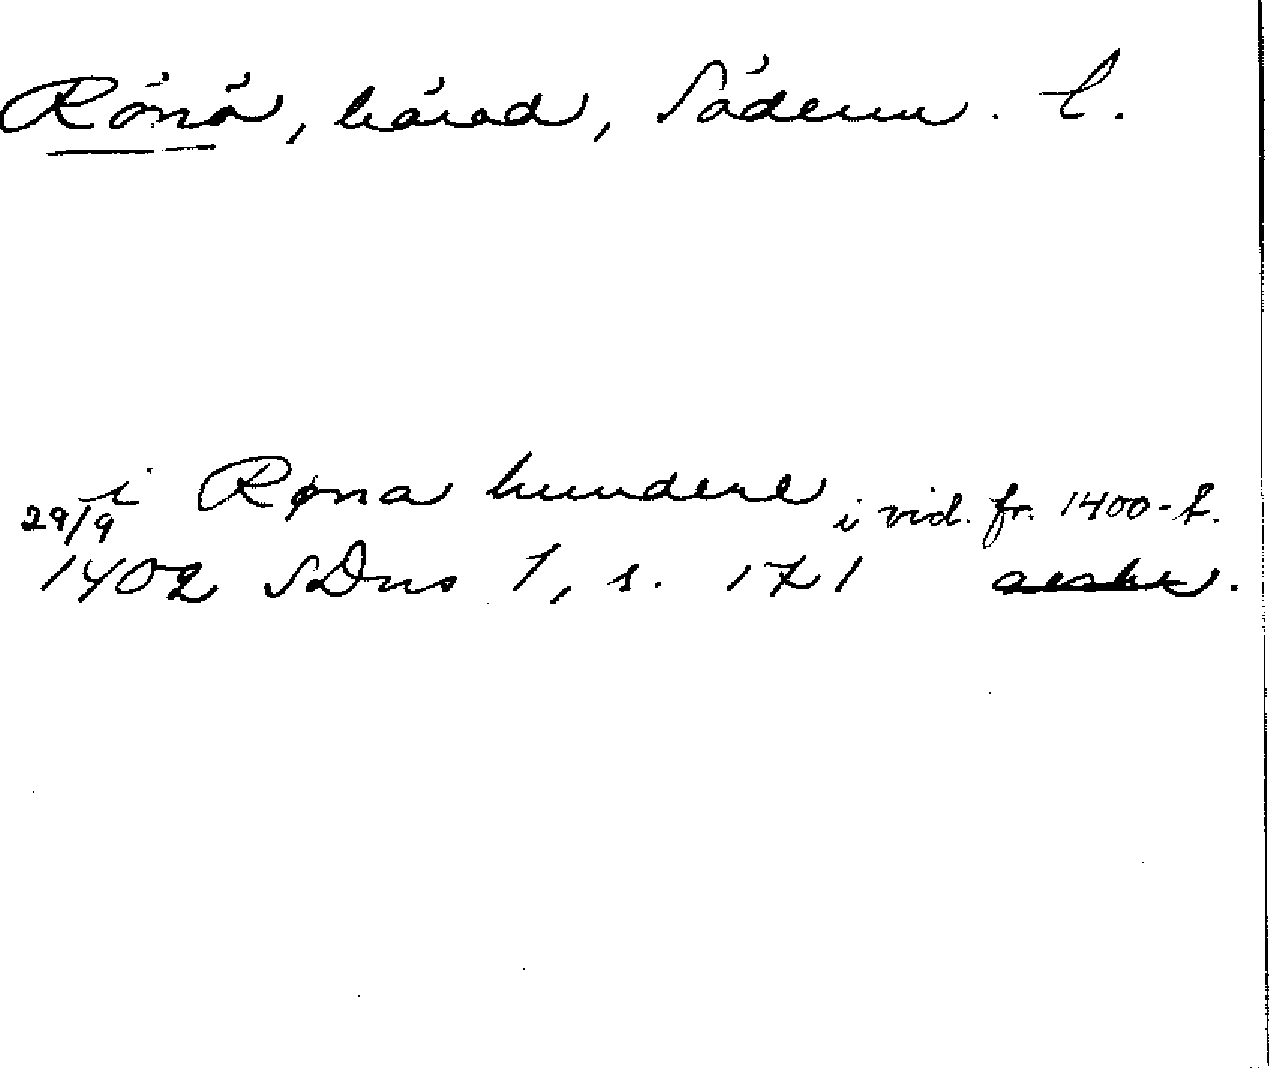 Rönö, härad, Söderm. l.
i Røna hundere i vid. fr. 1400-t.
29/9
1402 SDns 1, s. 171